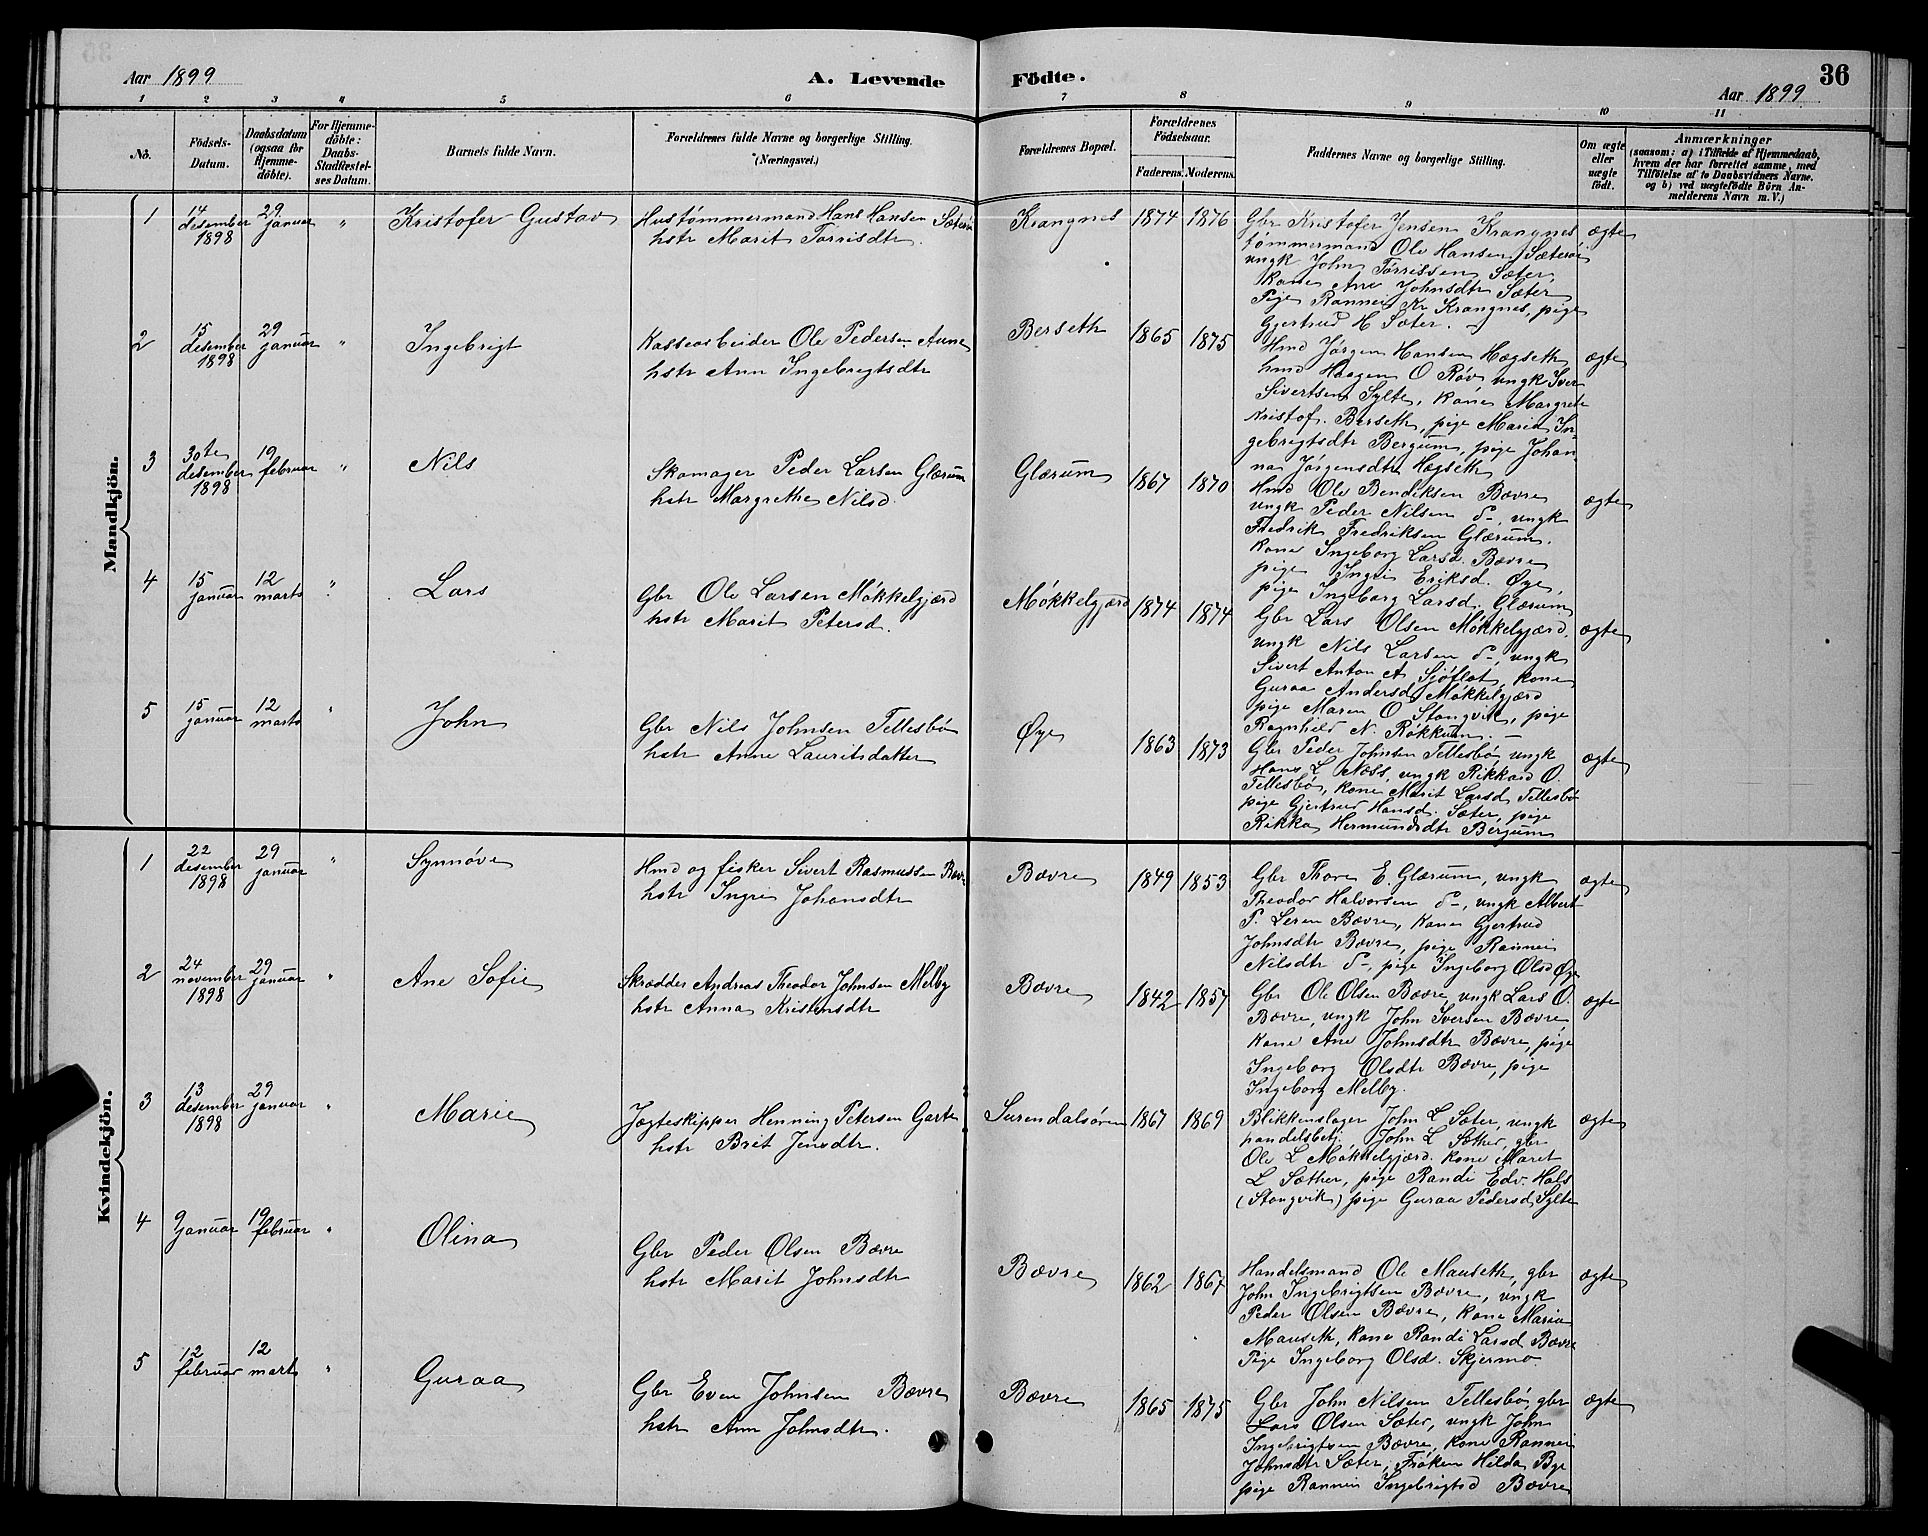 Aar 1899
A. Levende Födte.
36
Aar 1899
1 2 3 4 5 6 7 8 9 10 11
No.
Födsels-Datum.
Daabsdatum (ogsaa for Hjemme-döbte).
For Hjemme-döbte: Daabs-Stadfæstel-ses Datum.
Barnets fulde Navn.
Forældrenes fulde Navne og borgerlige Stilling. (Næringsvei.)
Forældrenes Bopæl.
Forældrenes Födselsaar.
Faderens. Moderens.
Faddernes Navne og borgerlige Stilling.
Om ægte eller uægte födt.
Anmærkninger
(saasom: a) i Tilfælde af Hjemmedaab,
hvem der har forrettet samme, med
Tilföielse af to Daabsvidners Navne.
og b) ved uægtefödte Börn An-
melderens Navn m.V.)
Mandkjön.
1
14 desember 1898
29 januar
"
Kristofer Gustav
Hustømmermand Hans Hansen Sæterøi
hstr Marit Torrisdtr.
Krangnes
1874 1876
Gbr Kristofer Jensen Krangnes
tømmermand Ole Hansen Sæterøi
ungk John Torrissen Sæter
Kone Ane Johnsdtr Sæter
Pige Rannei Kr Krangnes, pige
Gjertrud H Sæter.
ægte
2
15 desember 1898
29 januar
"
Ingebrigt
Kassearbeider Ole Pedersen Aune
hstr Ann Ingebrigtsdtr
Berseth
1865 1875
Hmd Jørgen Hansen Hægseth
hmd Haagen O Røv ungk Iver
Sivertsen Sylte, kone Margrete
Kristof. Berseth, pige Marie In-
gebrigtsdtr Bergum, pige Johan-
na Jørgensdtr Hægseth
ægte
3
30te desember 1898
19 februar
"
Nils
Skomager Peder Larsen Glærum
hstr Margrethe Nilsd
Glærum
1867 1870
Hmd Ole Bendiksen Bævre
ungk Peder Nilsen d-, ungk
Fredrik Fredriksen Glærum.
Kone Ingeborg Larsd. Bævre
pige Ingri Eriksd. Øye,
pige Ingeborg Larsd. Glærum
ægte
4
15 januar
12 marts
"
Lars
Gbr Ole Larsen Møkkelgjærd
hstr Marit Petersd.
Møkkelgjærd
1874 1874
Gbr Lars Olsen Møkkelgjærd,
ungk Nils Larsen d-, ungk
Sivert Anton A Sjøflot, kone
Guraa Andersd Møkkelgjærd
pige Maren O Stangvik, pige
Ragnhild N. Røkkum. -
ægte
5
15 januar
12 marts
"
John
Gbr Nils Johnsen Tellesbø
hstr Anne Lauritsdatter
Øye
1863 1873
Gbr Peder Johnsen Tellesbø, ungk
Hans L Næss, ungk Rikkard O.
Tellesbø, kone Marit Larsd Tellesbø
pige Gjertrud Hansd. Sæter, pige
Rikka Hermundsdtr Bergum
ægte
Kvindekjön.
1
22 desember 1898
29 januar
"
Synnøve
Hmd og fisker Sivert Rasmussen Bævre
hstr Ingri Johansdtr
Bævre
1849 1853
Gbr Thore E. Glærum, ungk
Theodor Halvorsen d-, ungk Albert
P. Leren Bævre, kone Gjertrud
Johnsdtr Bævre, pige Rannei
Nilsdtr d-, pige Ingeborg Olsd Øye
ægte
2
24 november 1898
29 januar
"
Ane Sofie
Skrædder Andreas Theodor Johnsen Melby
hstr Anna Kristensdtr
Bævre
1842 1857
Gbr Ole Olsen Bævre, ungk Lars O.
Bævre, ungk John Iversen Bævre
Kone Ane Johnsdtr Bævre, pige
Ingeborg Olsdtr Bævre, pige
Ingeborg Melby.
ægte
3
13 desember 1898
29 januar
"
Marie
Jægteskipper Henning Petersen Garte
hstr Brit Jensdtr.
Surendalsøren
1867 1869
Blikkenslager John L Sæter, ungk
handelsbetj. John L Sæther, gbr
Ole L Møkkelgjærd. kone Maret
L Sæther, pige Randi Edv. Hals
(Stangvik) pige Guraa Pedersd Sylte
ægte
4
9 januar
19 februar
"
Olina
Gbr Peder Olsen Bævre
hstr Marit Johnsdtr
Bævre
1862 1867
Handelsmand Ole Mauseth, gbr
John Ingebrigtsen Bævre, ungk
Peder Olsen Bævre, Kone Maria
Mauseth, Kone Randi Larsd Bævre
Pige Ingeborg Olsd. Skjermo
ægte
5
12 februar
12 marts
"
Guraa
Gbr Even Johnsen Bævre
hstr Ann Johnsdtr.
Bævre
1865 1875
Gbr John Nilsen Tellesbø, gbr
Lars Olsen Sæter, ungk John
Ingebrigtsen Bævre, kone Rannei
Johnsdtr Sæter, Frøken Hilda Bye
pige Rannei Ingebrigtsd Bævre
ægte